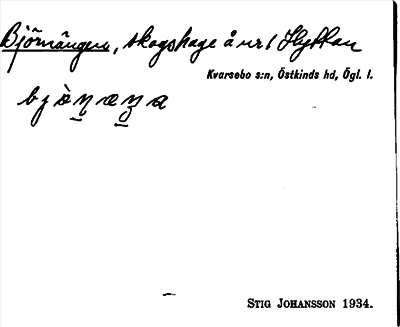 Björnängen, skogshage å nr 1 Hyttan
Kvarsebo s:n, Östkinds hd, Ögl. l.
STIG JOHANSSON 1934.